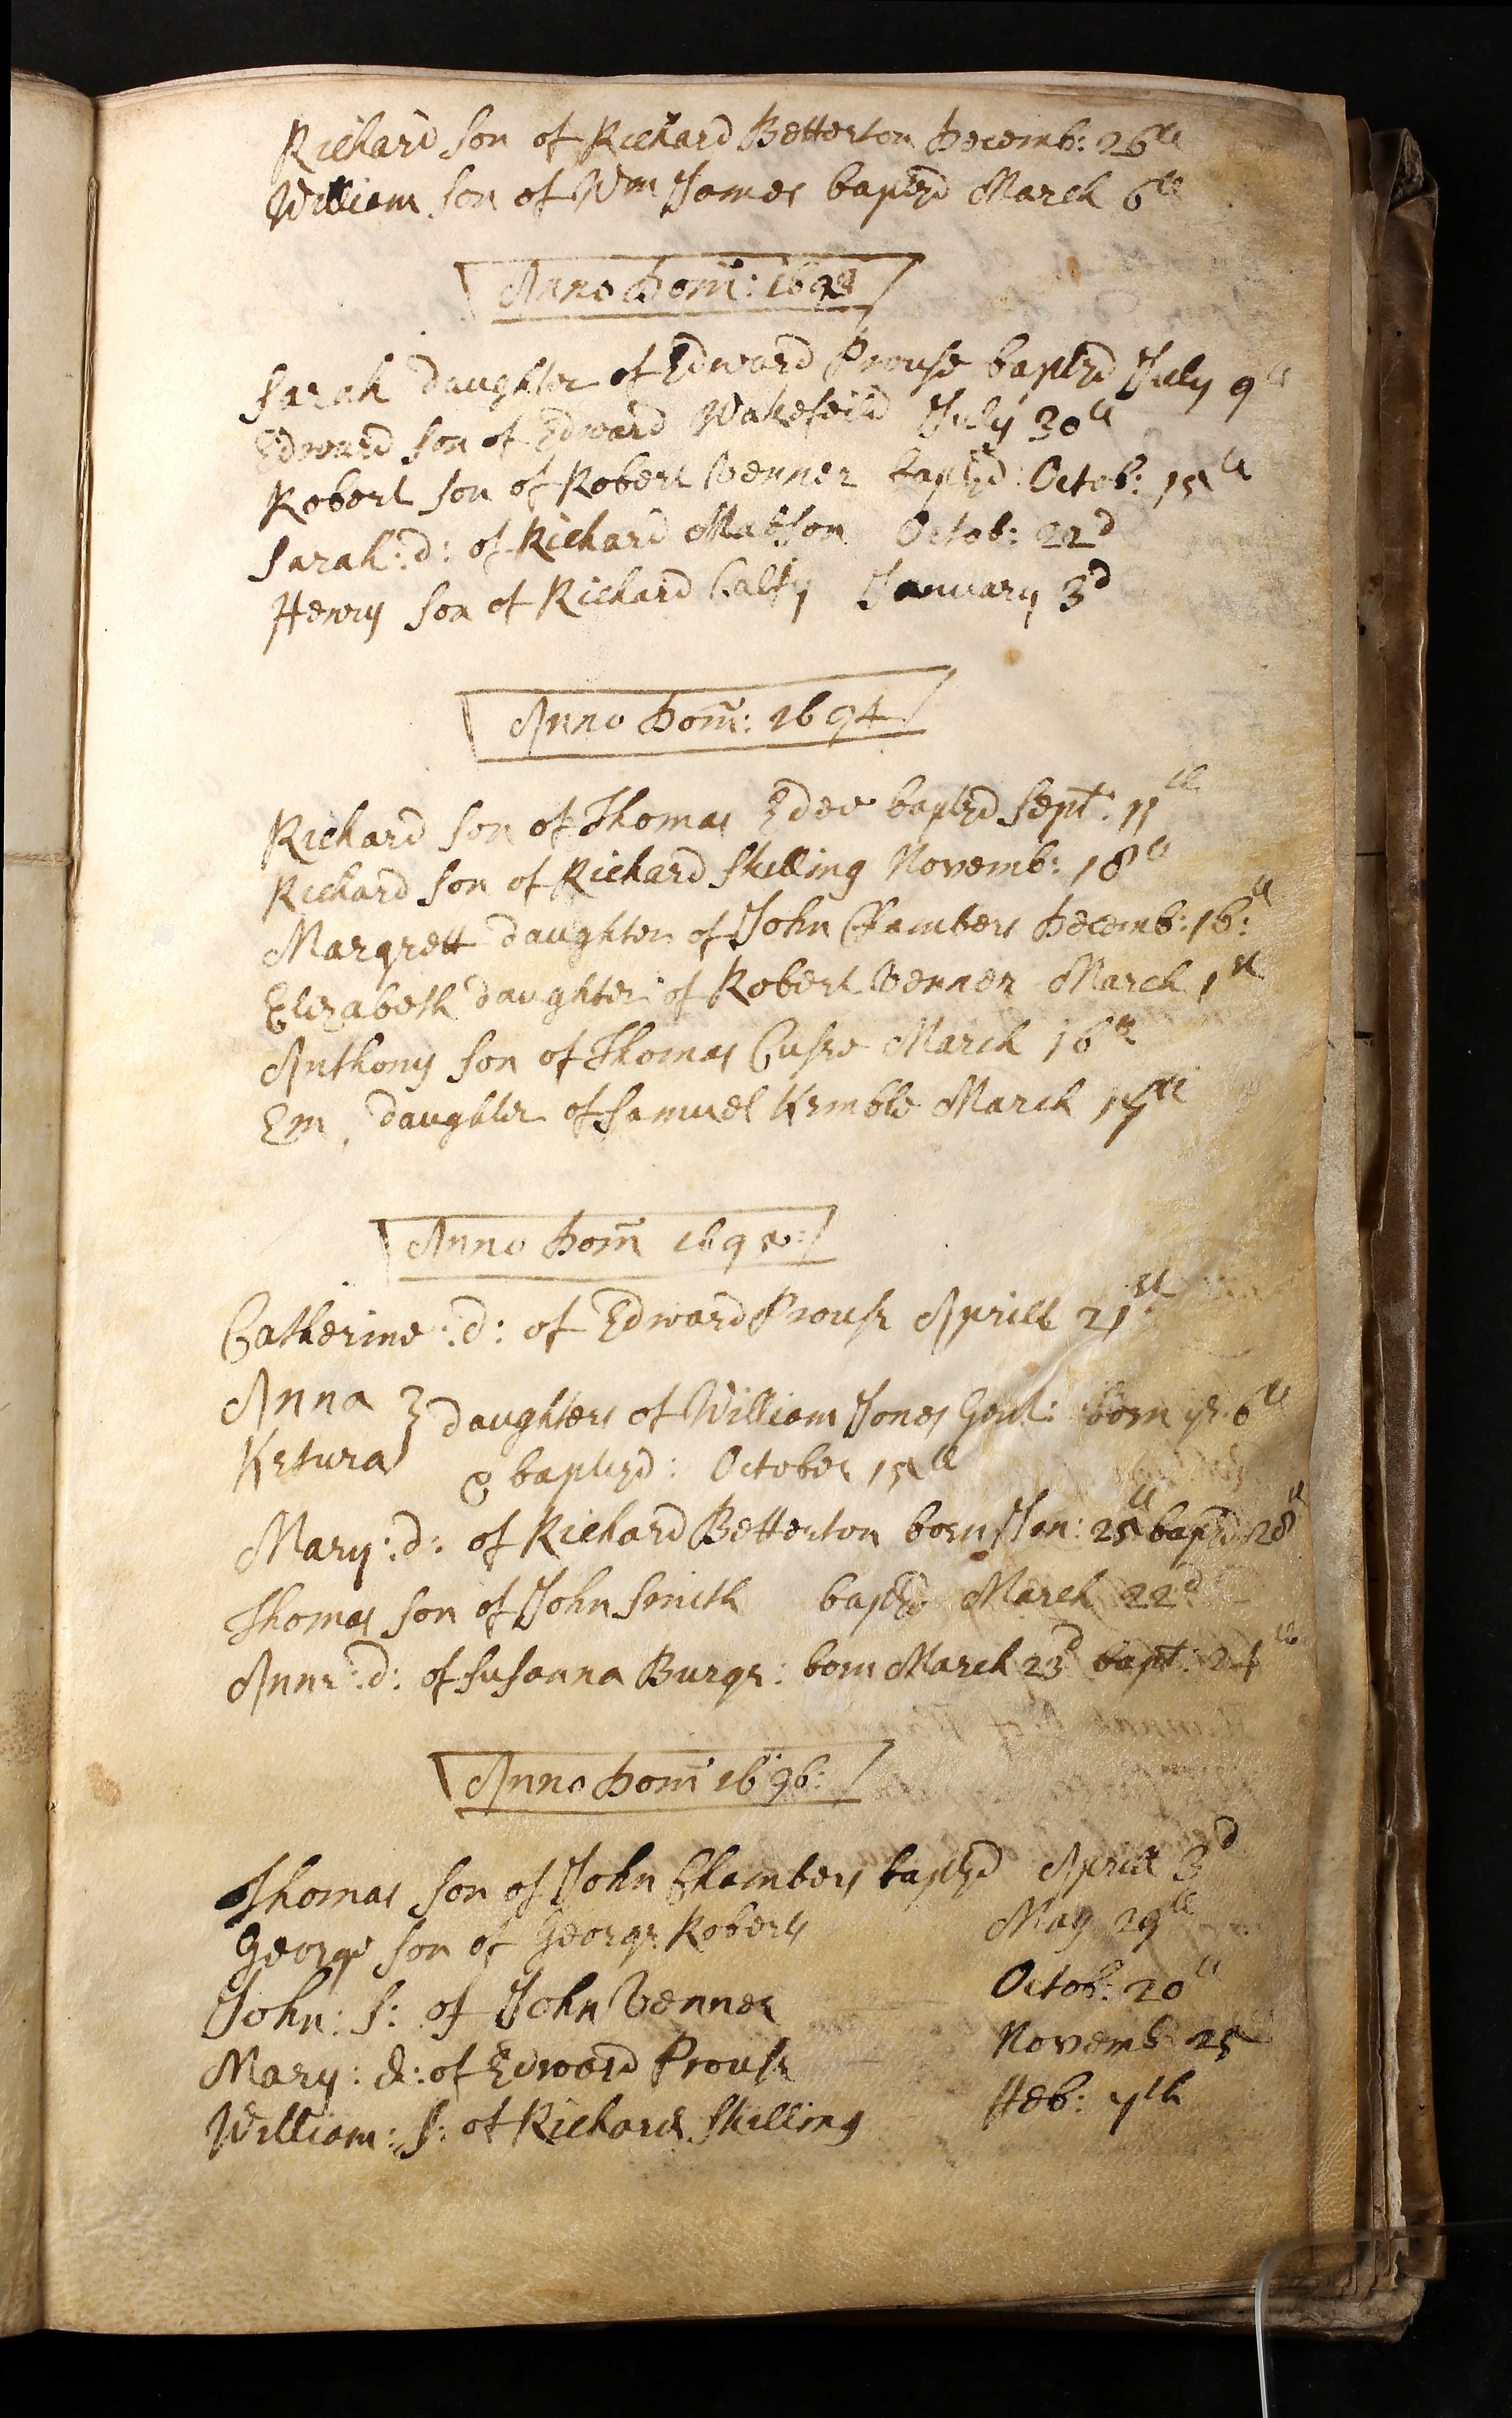 Richard son of Richard Betterton Decemb: 26th
William son of Wm James baptzd March 6th
Anno Dom: 1693
Sarah daughter of Edward Prouse baptzd July 9th
Edward son of Edward Wakefeild July 30th
Robert son of Robert Venner baptzd Octob: 15th
Sarah: d: of Richard Matson Octob: 22d
Henry son of Richard Calfy January 3d
Anno Dom: 1694
Richard son of Thomas Edee baptzd Sept: 11th
Richard son of Richard Skilling Novemb: 18th
Margrett daughter of John Chambers Decemb: 16:th
Elizabeth daughter of Robert Venner March 1st
Anthony son of Thomas Cusse March 16th
Em daughter of Samuel Kemble March 17th
Anno Dom 1695:
Catherine: d: of Edward Prouse Aprill 21st
Anna } daughters of William Jones Gent: born ye 6th
Ketura } & baptizd: October 15th
Mary: d: of Richard Betterton born Jan: 25th bapzd 28th
Thomas son of John Smith baptzd March 22d
Anne: d: of Susanna Burge: born March 23d bapt: 24th
Anno Dom 1696:
Thomas son of John Chambers baptzd Aprill 3d
George son of George Roberts May 29th
John: s: of John Venner Octob: 20th
Mary: d: of Edward Prouse Novemb 25
William: s: of Richard Skilling Feb: 7th